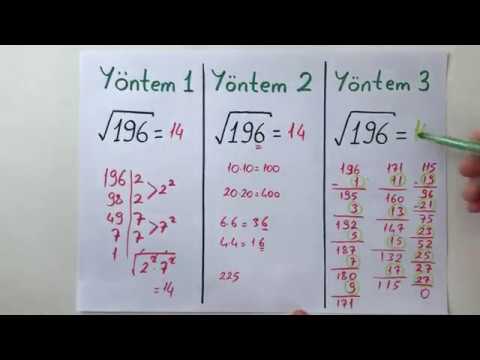 Yöntem 1
√196 = 14
196 | 2
98 | 2 > 2²
49 | 7
7 | 7 > 7²
1
√2²·7²
= 14
Yöntem 2
√196 = 14
10·10=100
20·20=400
6·6=36
4·4=16
225
Yöntem 3
√196 =
196
-1
195
3
192
5
187
7
180
9
171
171
11
160
13
147
15
132
17
115
115
-19
96
-21
75
23
52
25
27
27
0